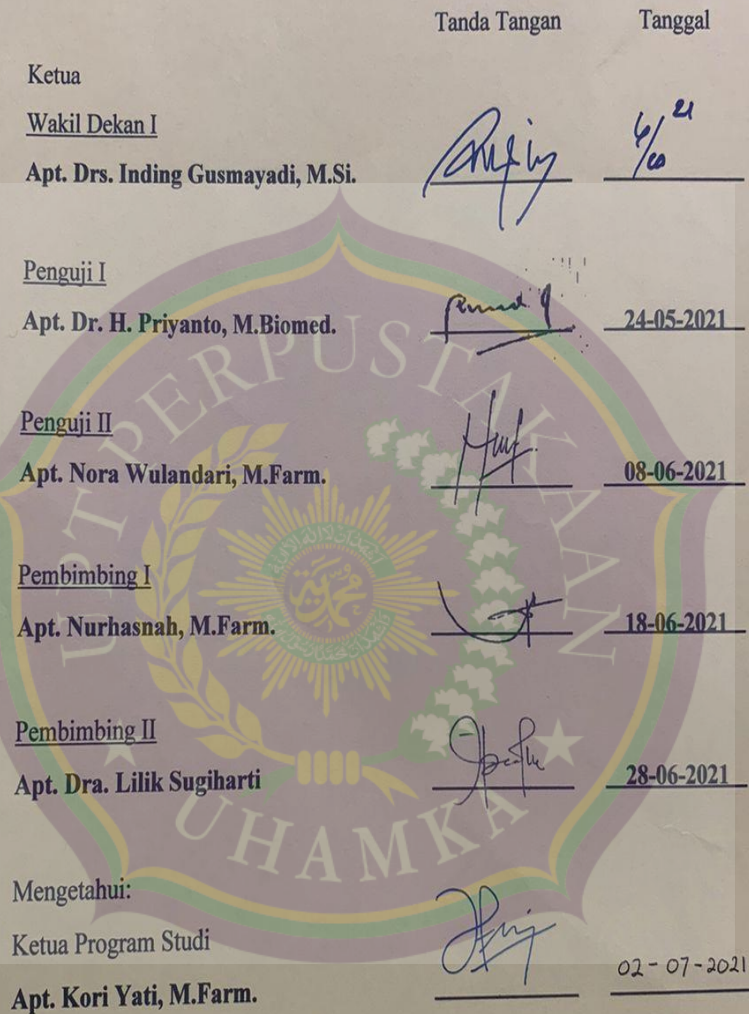 Tanda Tangan Tanggal
Ketua
Wakil Dekan I
Apt. Drs. Inding Gusmayadi, M.Si.
Penguji I
Apt. Dr. H. Priyanto, M.Biomed. 24-05-2021
Penguji II
Apt. Nora Wulandari, M.Farm. 08-06-2021
Pembimbing I
Apt. Nurhasnah, M.Farm. 18-06-2021
Pembimbing II
Apt. Dra. Lilik Sugiharti 28-06-2021
Mengetahui:
Ketua Program Studi
Apt. Kori Yati, M.Farm. 02-07-2021
UPT PERPUSTAKAAN
UHAMKA